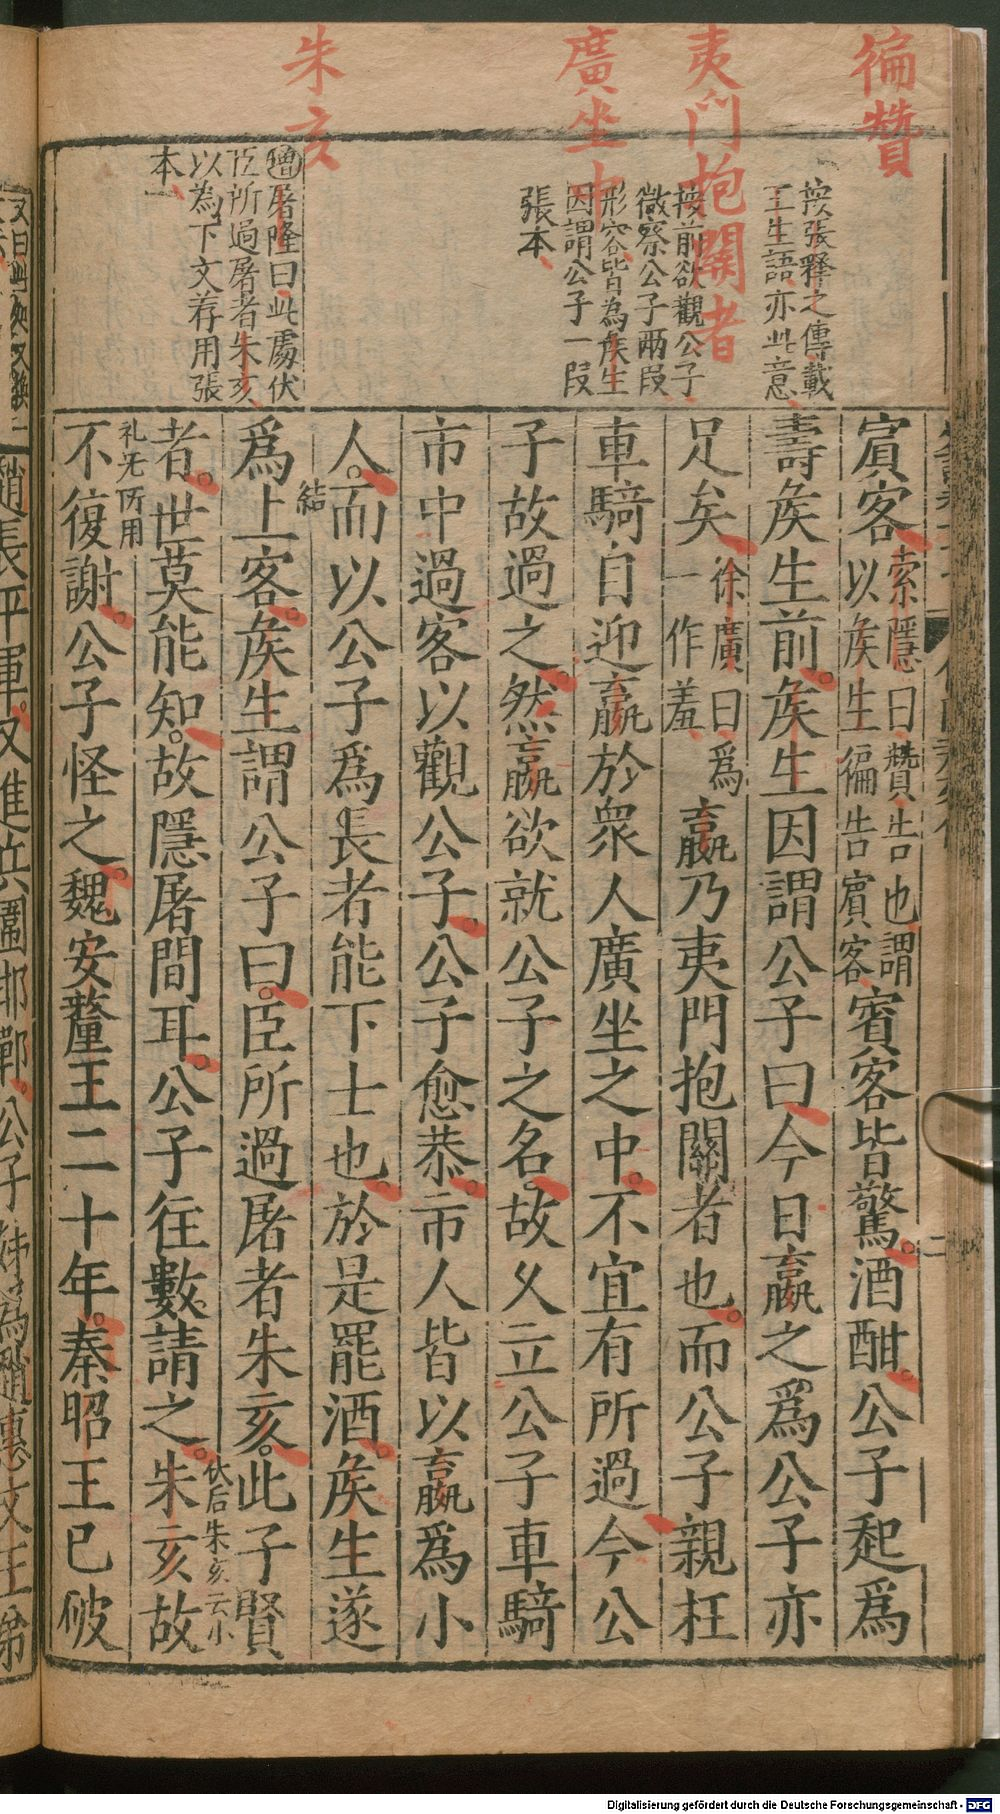 徧贊
夷門抱關者
廣坐中
朱亥
按張釋之傳載
王生語亦此意
按前欲觀公子
微察公子兩段
形容皆為矦生
因謂公子一段
張本
增屠隆曰此處伏
臣所過屠者朱亥
以為下文荐用張
本
賔客索隱曰贊告也謂以矦生徧告賔客賔客皆驚酒酣公子起爲
壽矦生前矦生因謂公子曰今日嬴之爲公子亦
足矣徐廣曰爲一作羞嬴乃夷門抱關者也而公子親枉
車騎自迎嬴於衆人廣坐之中不宜有所過今公
子故過之然嬴欲就公子之名故久立公子車騎
市中過客以觀公子公子愈恭市人皆以嬴爲小
人而以公子爲長者能下士也於是罷酒矦生遂
結
爲上客矦生謂公子曰臣所過屠者朱亥此子賢
伏后朱亥云小
者世莫能知故隱屠間耳公子往數請之朱亥故
礼无所用
不復謝公子怪之魏安釐王二十年秦昭王已破
趙長平軍又進兵圍邯鄲公子姊爲趙惠文王弟
二
Digitalisierung gefördert durch die Deutsche Forschungsgemeinschaft - DFG